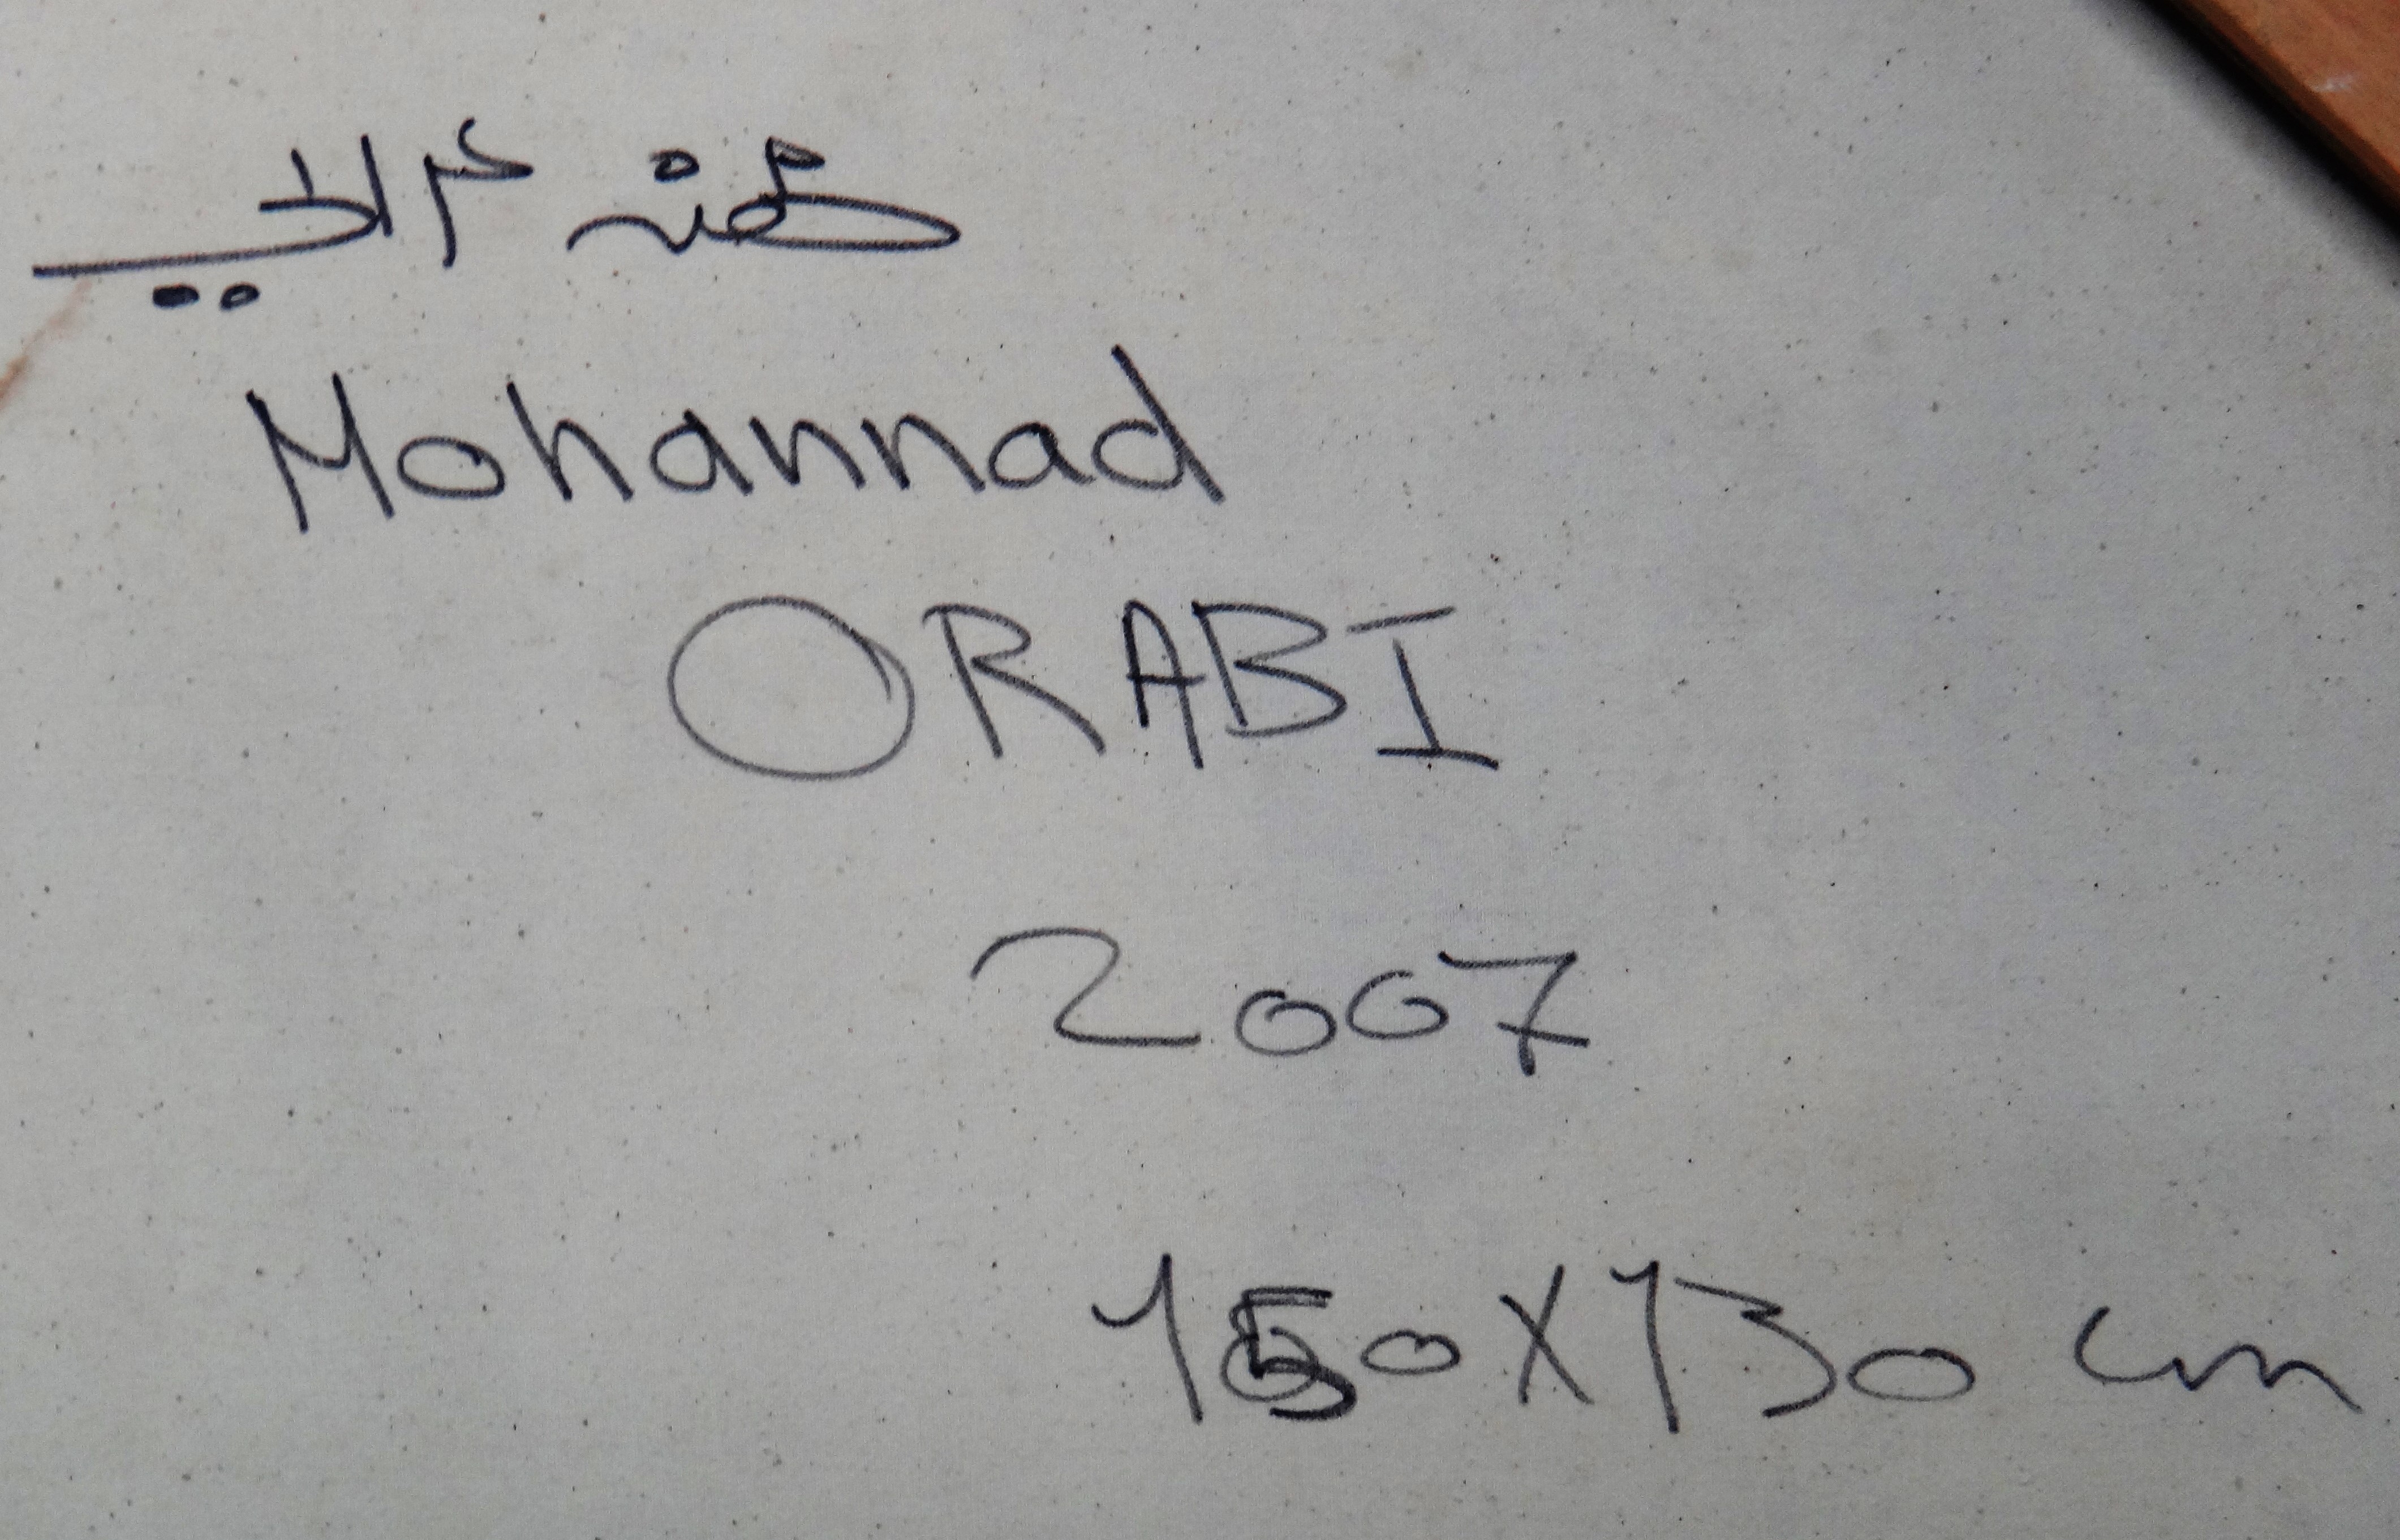 مهند عرابي
Mohannad
ORABI
2007
150X130 cm